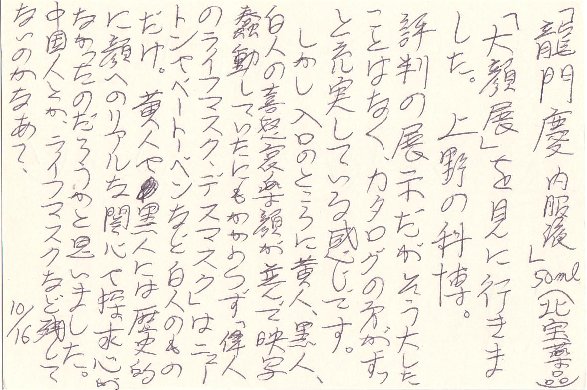 「龍門慶内服液」50ml(北宝薬品
「大顔展」を見に行きま
した。上野の科博。
評判の展示だがそう大した
ことはなくカタログの方がずっ
と充実している感じです。
しかし入口のところに黄人、黒人、
白人の喜怒哀楽顔が並んで映写
蠢動していたにもかかわらず「偉人
のライフマスク・デスマスク」はニュー
トンやベートーベンなど白人のもの
だけ。黄人や黒人には歴史的
に顔へのリアルな関心や探求心が
なかったのだろうかと思いました。
中国人とか、ライフマスクなど残して
ないのかなあて、
10/16